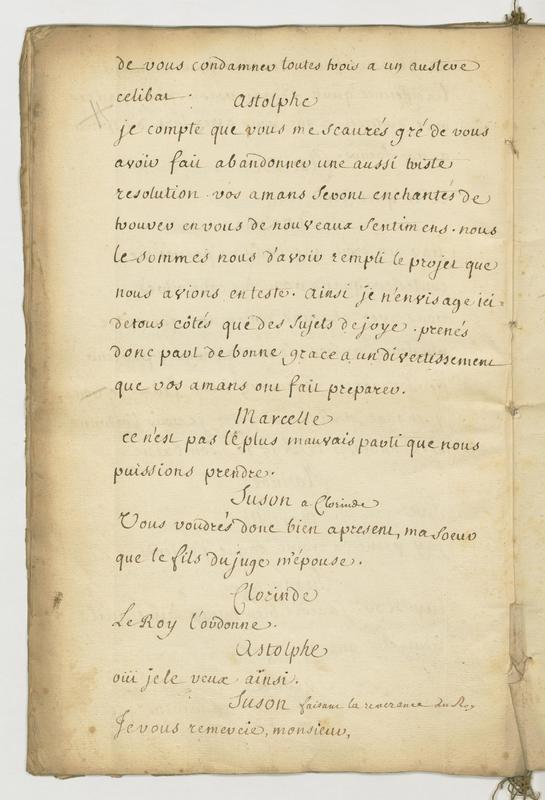 de vous condamner toutes trois a un austere
celibat.
Astolphe
je compte que vous me scaurés gré de vous
avoir fait abandonner une aussi triste
resolution. vos amans seront enchantés de
trouver en vous de nouveaux sentimens. nous
le sommes nous d'avoir rempli le projet que
nous avions en teste. ainsi je n'envisage ici
de tous côtés que des sujets de joye. prenés
donc part de bonne grace a un divertissement
que vos amans ont fait preparer.
Marcelle
ce n'est pas le plus mauvais parti que nous
puissions prendre.
Suson a Clorinde
Vous voudrés donc bien apresent, ma soeur
que le fils du juge m'épouse.
Clorinde
Le Roy l'ordonne.
Astolphe
oüi je le veux ainsi.
Suson faisant la reverance au Roy
Je vous remercie, monsieur,